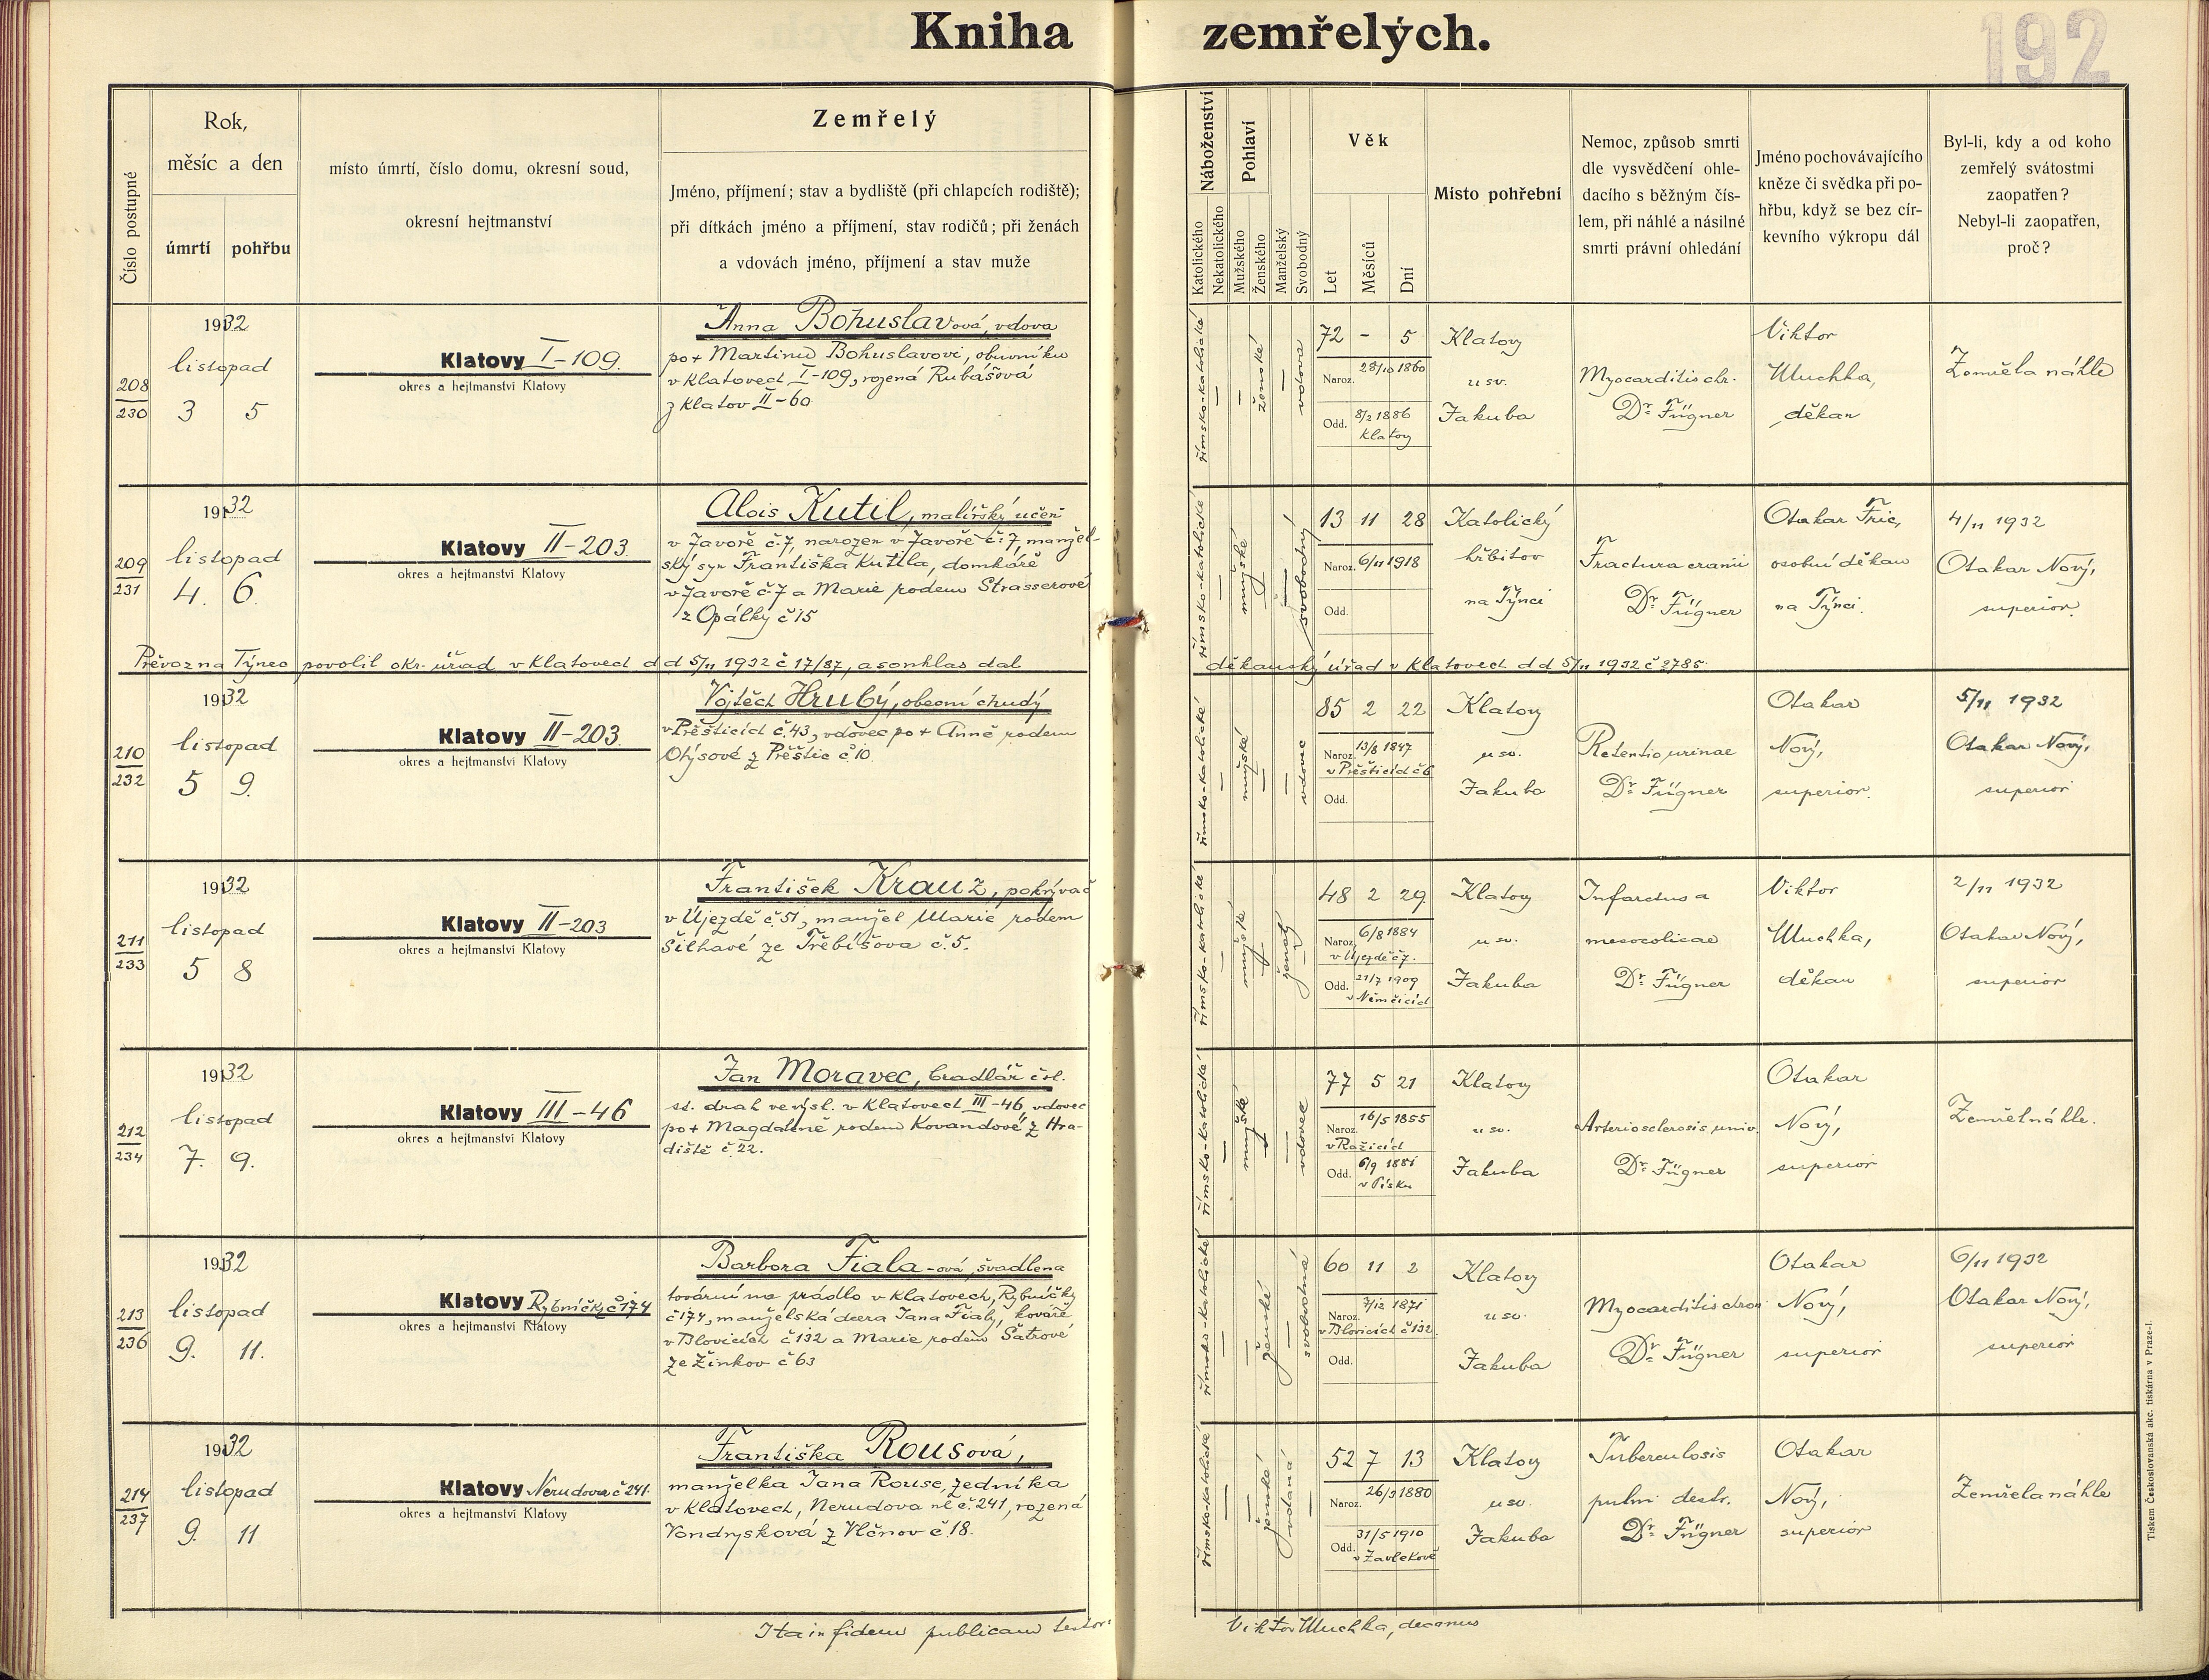 Kniha zemřelých.
192
Číslo postupné
Rok,
měsíc a den
úmrtí
pohřbu
místo úmrtí, číslo domu, okresní soud,
okresní hejtmanství
Zemřelý
Jméno, příjmení; stav a bydliště (při chlapcích rodiště);
při dítkách jméno a příjmení, stav rodičů; při ženách
a vdovách jméno, příjmení a stav muže
Náboženství
Katolického
Nekatolického
Pohlaví
Mužského
Ženského
Manželský
Svobodný
Věk
Let
Měsíců
Dní
Místo pohřební
Nemoc, způsob smrti
dle vysvědčení ohle-
dacího s běžným čís-
lem, při náhlé a násilné
smrti právní ohledání
Jméno pochovávajícího
kněze či svědka při po-
hřbu, když se bez cír-
kevního výkropu dál
Byl-li, kdy a od koho
zemřelý svátostmi
zaopatřen?
Nebyl-li zaopatřen,
proč?
208
230
1932
listopad
3 5
Klatovy I-109.
okres a hejtmanství Klatovy
Anna Bohuslavová, vdova
po + Martinu Bohuslavovi, obuvníku
v Klatovech I-109, rozená Rubášová
z Klatov II-60
římsko-katolické
ženské
vdova
72 - 5
Naroz. 28/10 1860
Odd. 8/2 1886
Klatovy
Klatovy
u sv.
Jakuba
Myocarditis chr.
Dr. Fügner
Viktor
Muchka,
děkan
Zemřela náhle
209
231
1932
listopad
4. 6.
Klatovy II-203.
okres a hejtmanství Klatovy
Alois Kutil, malířský učeň
v Javoře č. 7, narozen v Javoře č. 7, manžel-
ský syn Františka Kutila, domkáře
v Javoře č. 7 a Marie rodem Strasserové
z Opálky č 15
římsko-katolické
mužské
svobodný
13 11 28
Naroz. 6/11 1918
Odd.
Katolický
hřbitov
na Týnci
Fractura cranii
Dr. Fügner
Otakar Fric,
osobní děkan
na Týnci.
4/11 1932
Otakar Nový,
superior.
Převoz na Týnec povolil okr. úřad v Klatovech d d 5/11 1932 č 17/87, a souhlas dal
děkanský úřad v Klatovech d d 5/11 1932 č 2785.
210
232
1932
listopad
5 9.
Klatovy II-203.
okres a hejtmanství Klatovy
Vojtěch Hrubý, obecní chudý
v Přešticích č. 43, vdovec po + Anně rodem
Ohýsové z Přeštic č 10.
římsko-katolické
mužské
vdovec
85 2 22
Naroz. 13/8 1847
v Přešticích č 6
Odd.
Klatovy
u sv.
Jakuba
Retentio urinae
Dr. Fügner
Otakar
Nový,
superior.
5/11 1932
Otakar Nový,
superior
211
233
1932
listopad
5 8
Klatovy II-203
okres a hejtmanství Klatovy
František Krauz, pokrývač
v Újezdě č. 51, manžel Marie rodem
Šilhavé ze Třebíšova č. 5.
římsko-katolické
mužské
ženatý
48 2 29
Naroz. 6/8 1884
v Újezdě č 7.
Odd. 21/7 1909
v Němčicích
Klatovy
u sv.
Jakuba
Infarctus a
mesocolicae
Dr. Fügner
Viktor
Muchka,
děkan
2/11 1932
Otakar Nový,
superior
212
234
1932
listopad
7. 9.
Klatovy III-46
okres a hejtmanství Klatovy
Jan Moravec, bradlář čsl.
st. drah ve výsl. v Klatovech III-46, vdovec
po + Magdaléně rodem Kovandové z Hra-
diště č. 22.
římsko-katolické
mužské
vdovec
77 5 21
Naroz. 16/5 1855
v Ražicích
Odd. 6/9 1881
v Písku
Klatovy
u sv.
Jakuba
Arteriosclerosis univ.
Dr. Fügner
Otakar
Nový,
superior
Zemřel náhle.
213
236
1932
listopad
9. 11.
Klatovy Rybníčky č 174
okres a hejtmanství Klatovy
Barbora Fiala-ová, švadlena
tovární na prádlo v Klatovech, Rybníčky
č 174, manželská dcera Jana Fialy, kováře
v Blovicích č 132 a Marie rodem Šatrové
ze Žinkov č 63
římsko-katolické
ženské
svobodná
60 11 2
Naroz. 7/12 1871
v Blovicích č 132.
Odd.
Klatovy
u sv.
Jakuba
Myocarditis chron
Dr. Fügner
Otakar
Nový,
superior
6/11 1932
Otakar Nový,
superior
214
237
1932
listopad
9. 11
Klatovy Nerudova č 241.
okres a hejtmanství Klatovy
Františka Rousová,
manželka Jana Rouse, zedníka
v Klatovech, Nerudova ul č. 241, rozená
Vondrysková z Vlčnov č. 18.
římsko-katolické
ženské
vdaná
52 7 13
Naroz. 26/3 1880
Odd. 31/5 1910
v Zavlekově
Klatovy
u sv.
Jakuba
Tuberculosis
pulmi destr.
Dr. Fügner
Otakar
Nový,
superior
Zemřela náhle
Ita in fidem publicam testor:
Viktor Muchka, decanus
Tiskem Československá akc. tiskárna v Praze-I.